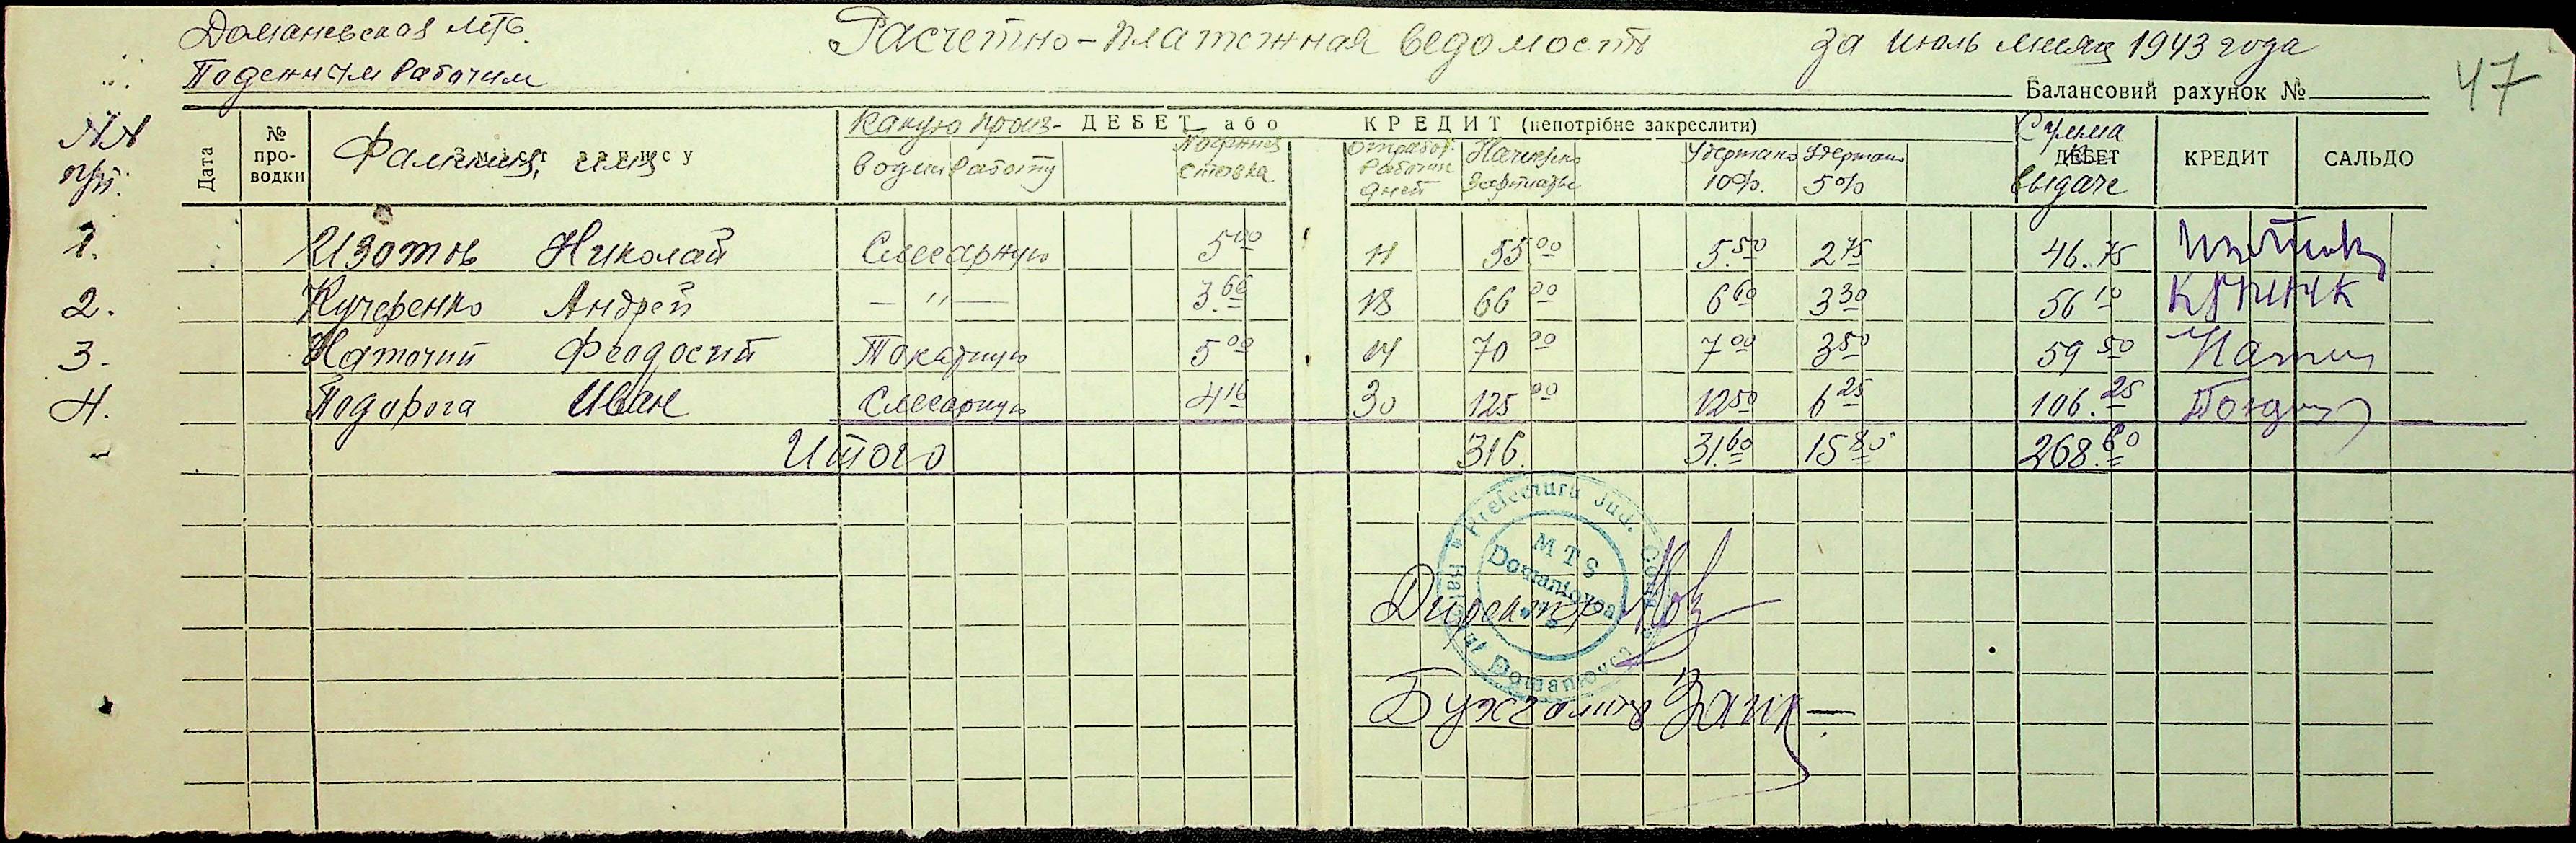 Доманевская МТС. Расчетно-платежная ведомость за июль месяц 1943 года
Поденным рабочим
Балансовий рахунок №
47
№№ пп. Дата № про-водки Фамилия, имя Зміст запису
Какую произ-водил работу ДЕБЕТ або КРЕДИТ (непотрібне закреслити)
ставка Отработ. рабочих дней Начислено зарплаты Удержано 10% Удержано 5% Сумма к выдаче ДЕБЕТ КРЕДИТ САЛЬДО
1. Изотов Николай Слесарную 5 00 11 55 00 5.50 2 75 46.75
2. Кучеренко Андрей — " — 3.66 18 66 00 6 60 3 30 56 10
3. Наточий Феодосий Токарную 5 00 14 70 00 7 00 3 50 59 50
4. Подорога Иван Слесарную 4 16 30 125 00 12 50 6 25 106.25
Итого 316. 31.60 15 80 268.60
Prefectura Jud.
MTS
Domaniovca
Директор
Бухгалтер